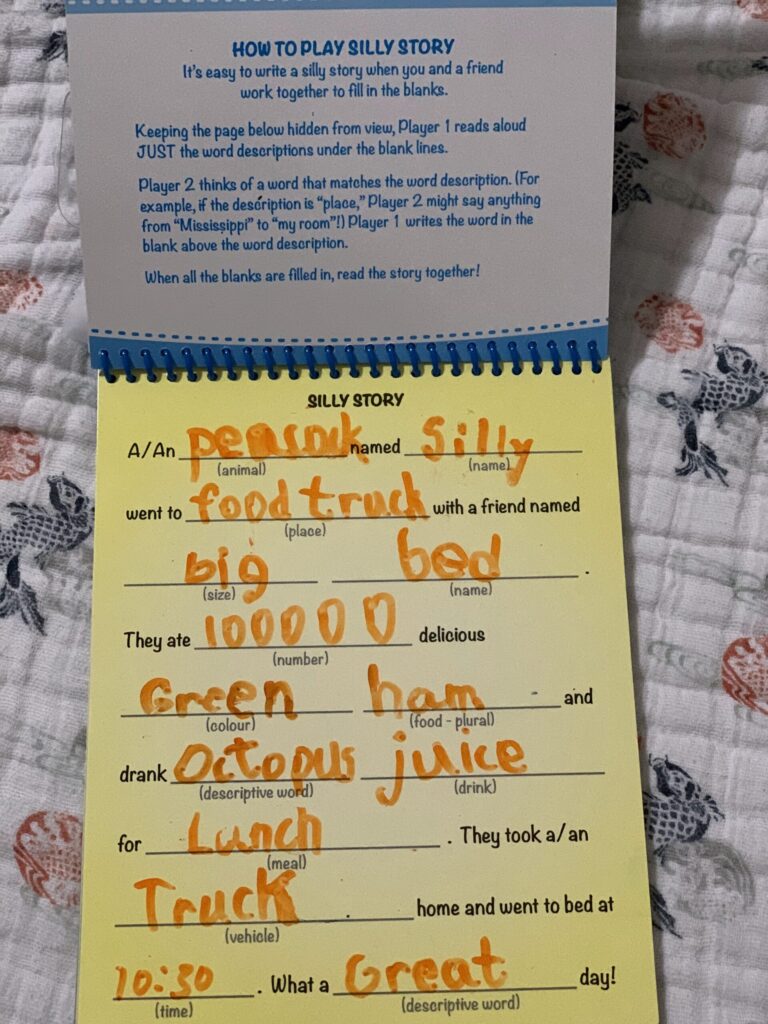 HOW TO PLAY SILLY STORY
It's easy to write a silly story when you and a friend
work together to fill in the blanks.
Keeping the page below hidden from view, Player 1 reads aloud
JUST the word descriptions under the blank lines.
Player 2 thinks of a word that matches the word description. (For
example, if the description is "place," Player 2 might say anything
from "Mississippi" to "my room"!) Player 1 writes the word in the
blank above the word description.
When all the blanks are filled in, read the story together!
SILLY STORY
A/An peasock named Silly
(animal) (name)
went to food truck with a friend named
(place)
big bed .
(size) (name)
They ate 100000 delicious
(number)
Green ham and
(colour) (food - plural)
drank Octopus juice
(descriptive word) (drink)
for Lunch . They took a/an
(meal)
Truck home and went to bed at
(vehicle)
10:30 . What a Great day!
(time) (descriptive word)